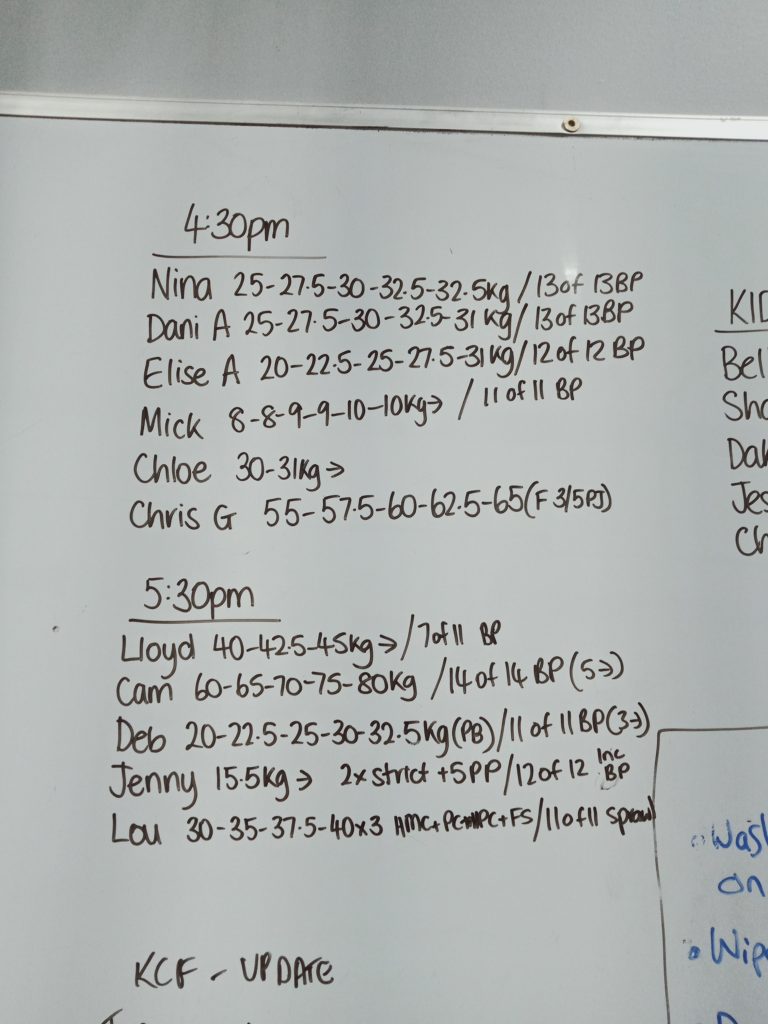 4:30pm
Nina 25-27.5-30-32.5-32.5kg/13 of 13 BP
Dani A 25-27.5-30-32.5-31kg/13 of 13BP
Elise A 20-22.5-25-27.5-31kg/12 of 12 BP
Mick 8-8-9-9-10-10kg→ / 11 of 11 BP
Chloe 30-31kg→
Chris G 55-57.5-60-62.5-65(F 3/5PJ)
5:30pm
Lloyd 40-42.5-45kg→/7 of 11 BP
Cam 60-65-70-75-80kg /14 of 14 BP(5→)
Deb 20-22.5-25-30-32.5kg(PB)/11 of 11 BP(3→)
Jenny 15.5kg→ 2x strict +5PP/12 of 12 Inc BP
Lou 30-35-37.5-40x3 HMC+PC+HPC+FS/11 of 11 Sprawl
KCF - UPDATE
KID
Bel
Sho
Dak
Jes
Ch
• Wash
on
• Wipe